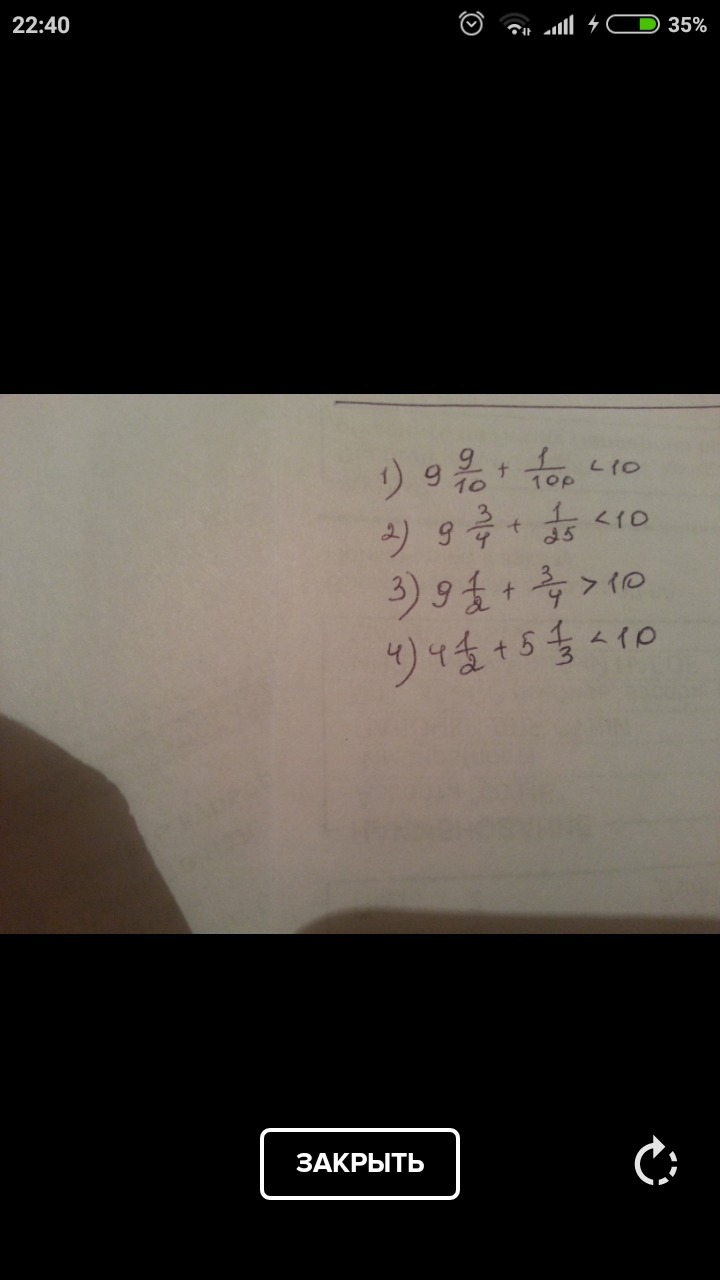 22:40 35%
1) 9 9/10 + 1/100 < 10
2) 9 3/4 + 1/25 < 10
3) 9 1/2 + 3/4 > 10
4) 4 1/2 + 5 1/3 < 10
ЗАКРЫТЬ